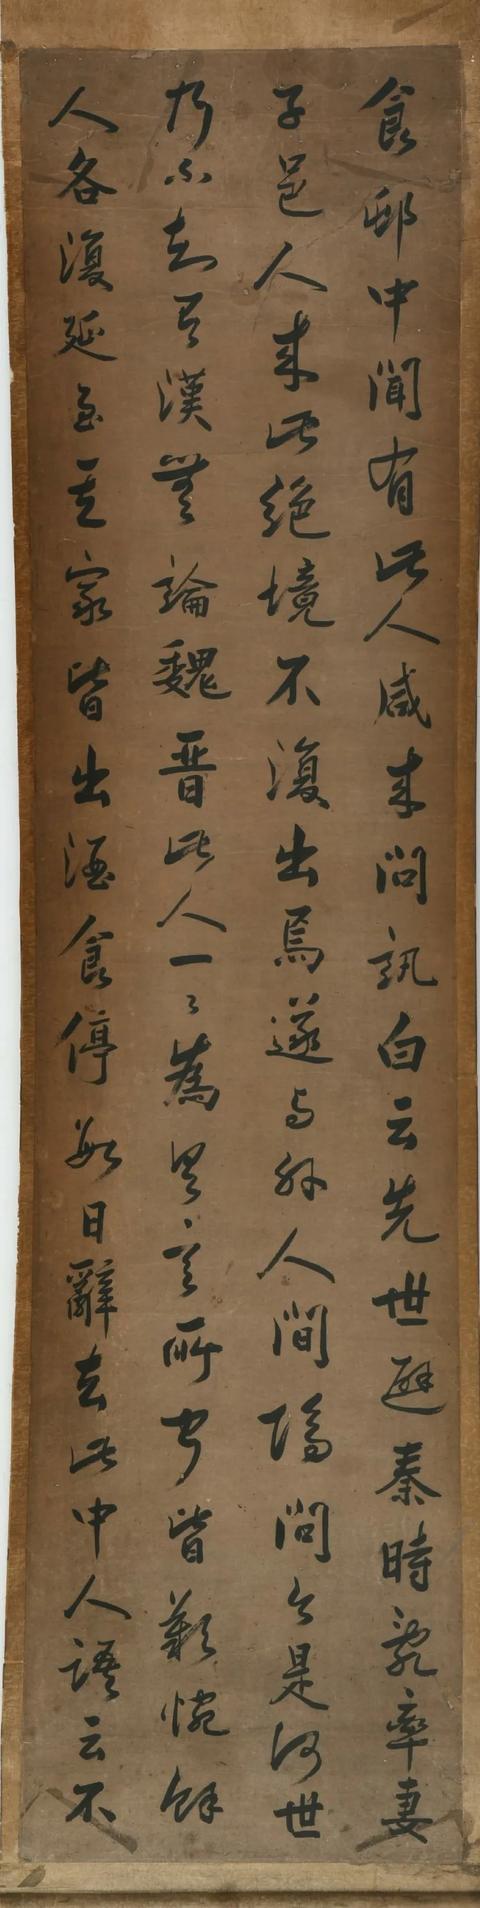 食邨中聞有此人咸来問訊自云先世避秦時亂率妻
子邑人来此絕境不復出焉遂与外人間隔問今是何世
乃不知有漢無論魏晋此人一〻為具言所聞皆歎惋餘
人各復延至其家皆出酒食停數日辭去此中人語云不